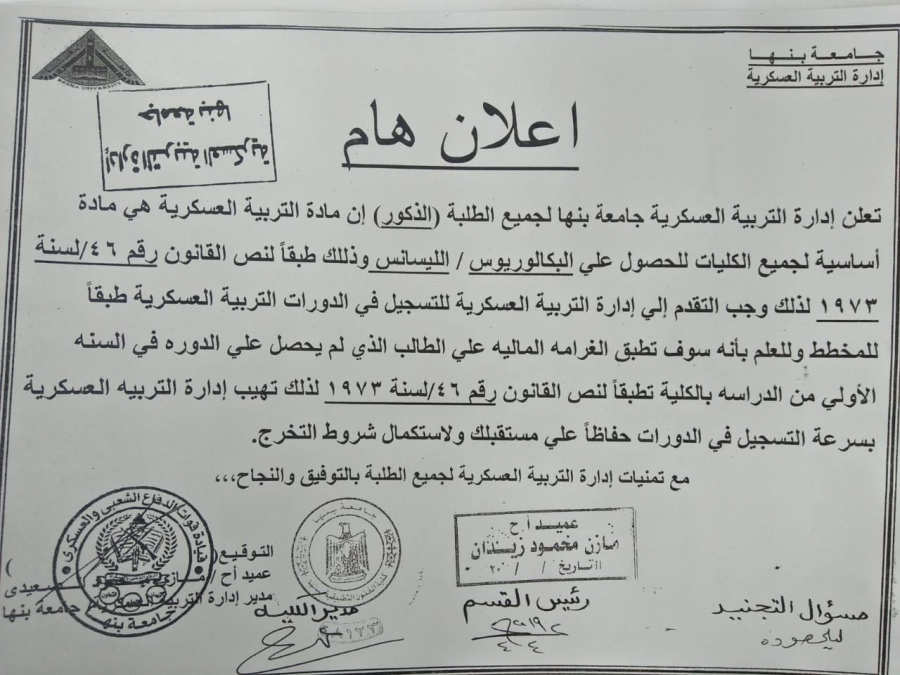 جامعة بنها
إدارة التربية العسكرية
إدارة التربية العسكرية
جامعة بنها
اعلان هام
تعلن إدارة التربية العسكرية جامعة بنها لجميع الطلبة (الذكور) إن مادة التربية العسكرية هي مادة
أساسية لجميع الكليات للحصول علي البكالوريوس / الليسانس وذلك طبقاً لنص القانون رقم ٤٦/لسنة
١٩٧٣ لذلك وجب التقدم إلي إدارة التربية العسكرية للتسجيل في الدورات التربية العسكرية طبقاً
للمخطط وللعلم بأنه سوف تطبق الغرامه الماليه علي الطالب الذي لم يحصل علي الدوره في السنه
الأولي من الدراسه بالكلية تطبقاً لنص القانون رقم ٤٦/لسنة ١٩٧٣ لذلك تهيب إدارة التربيه العسكرية
بسرعة التسجيل في الدورات حفاظاً علي مستقبلك ولاستكمال شروط التخرج.
مع تمنيات إدارة التربية العسكرية لجميع الطلبة بالتوفيق والنجاح،،،
عميد أ ح
مازن محمود زيدان
التاريخ / / ٢٠٠
جامعة بنها
قيادة قوات الدفاع الشعبى والعسكرى
جامعة بنها
التوقيع (
عميد أح /
مدير إدارة التربية العسكرية جامعة بنها
مسؤال التجنيد
رئيس القسم
مدير الكلية